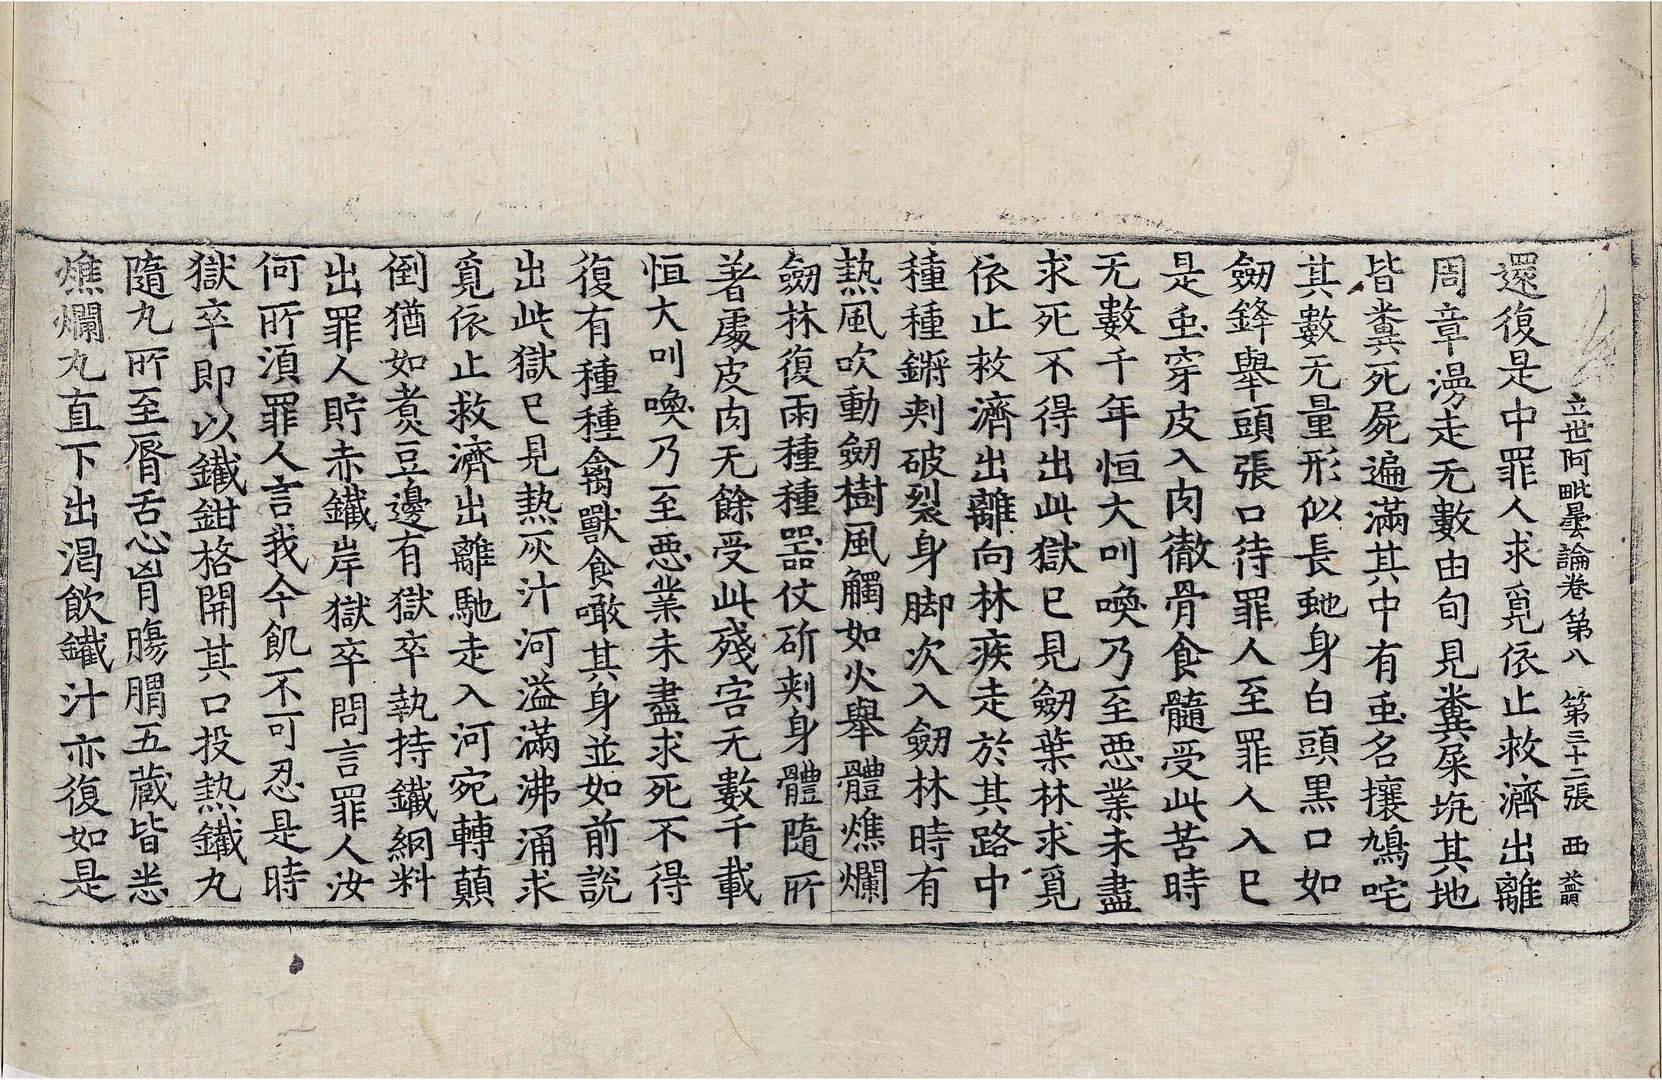 立世阿毗曇論卷第八 第三十二張 西
還復是中罪人求覓依止救濟出離
周章漫走无數由旬見糞屎坑其地
皆糞死屍遍滿其中有䖝名攘鳩咤
其數无量形似長虵身白頭黒口如
劒鋒舉頭張口待罪人至罪人入已
是䖝穿皮入肉徹骨食髓受此苦時
无數千年恒大叫喚乃至惡業未盡
求死不得出此獄已見劒葉林求覓
依止救濟出離向林疾走於其路中
種種鏘刺破裂身脚次入劒林時有
熱風吹動劒樹風觸如火舉體燋爛
劒林復雨種種器仗斫刺身體隨所
著處皮肉无餘受此殘害无數千載
恒大叫喚乃至惡業未盡求死不得
復有種種禽獸食噉其身並如前說
出此獄已見熱灰汁河溢滿沸涌求
覓依止救濟出離馳走入河宛轉顛
倒猶如煑豆邊有獄卒執持鐵網料
出罪人貯赤鐵岸獄卒問言罪人汝
何所湏罪人言我今飢不可忍是時
獄卒即以鐵鉗格開其口投熱鐵丸
隨丸所至脣舌心胷膓胃五藏皆悉
燋爛丸直下出渴飲鐵汁亦復如是